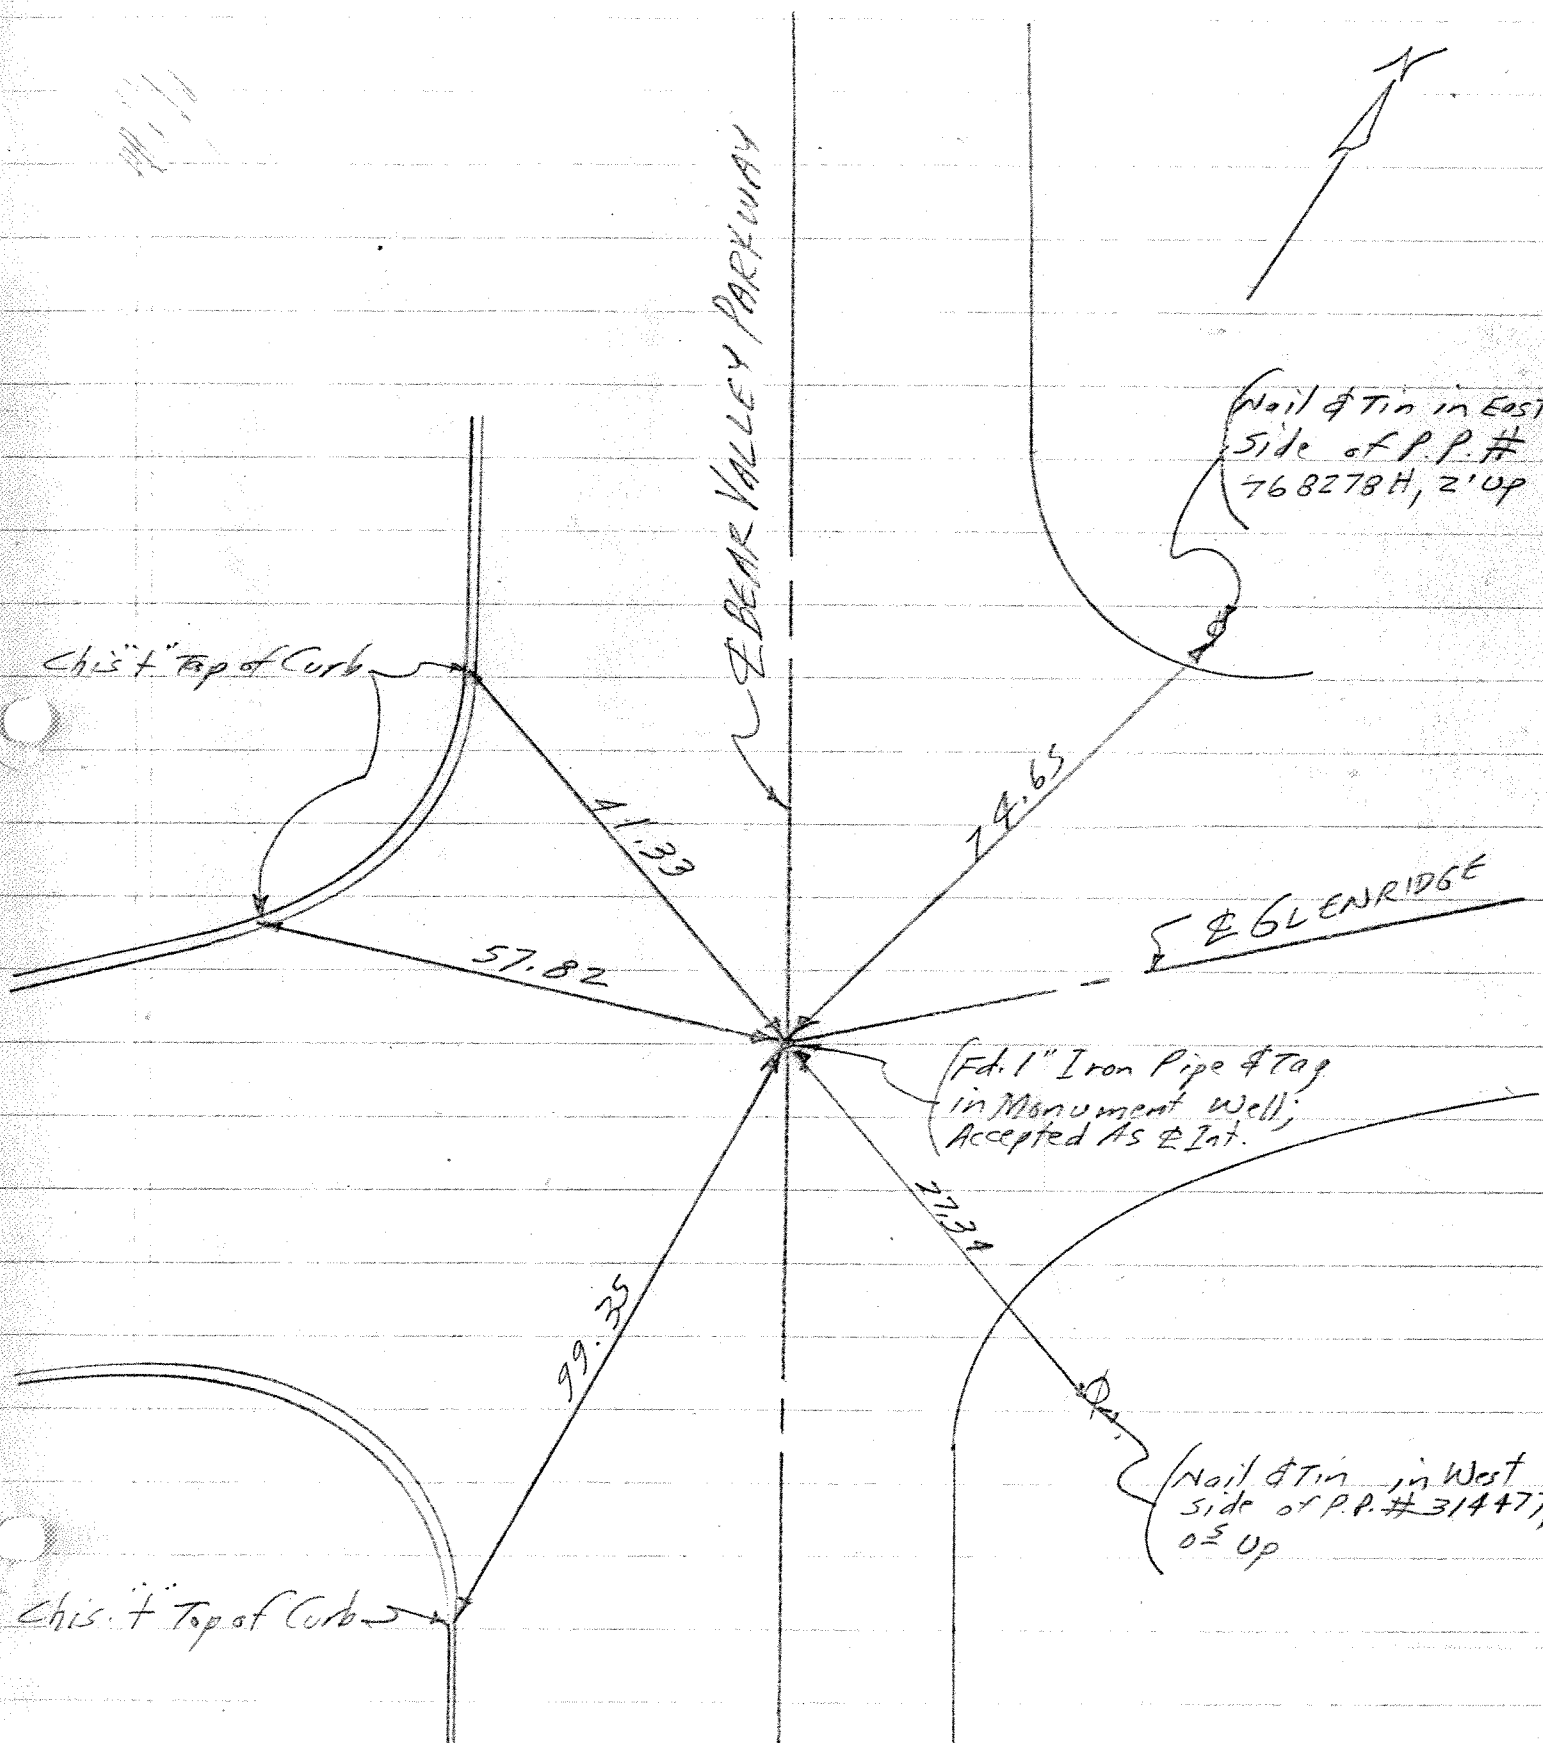 N
℄ BEAR VALLEY PARKWAY
Nail & Tin in East
Side of P.P. #
768278H, 2' Up
Chis "+" Top of Curb
74.65
57.82
℄ GLENRIDGE
Fd. 1" Iron Pipe & Tag
in Monument Well;
Accepted As ℄ Int.
99.35
Nail & Tin in West
side of P.P. # 314477,
0.5 Up
Chis. "+" Top of Curb